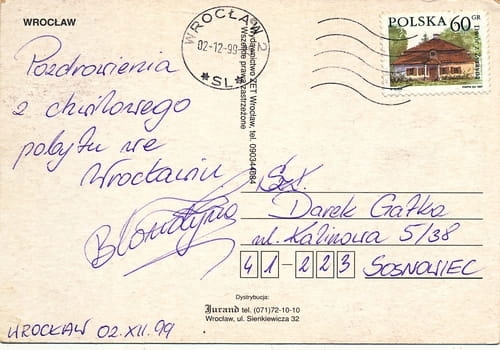 WROCŁAW
WROCŁAW 2
02-12-99
*SL*
POLSKA 60 GR
Pozdrowienia
z chwilowego
pobytu we
Wrocławiu
Blondyna
Wydawnictwo ZET Wrocław, tel. 090344084
Wszelkie prawa zastrzeżone
Sz.
Darek Gałka
ul. Kalinowa 5/38
41-223 SOSNOWIEC
Dystrybucja:
Jurand tel. (071)72-10-10
Wrocław, ul. Sienkiewicza 32
WROCŁAW 02.XII.99